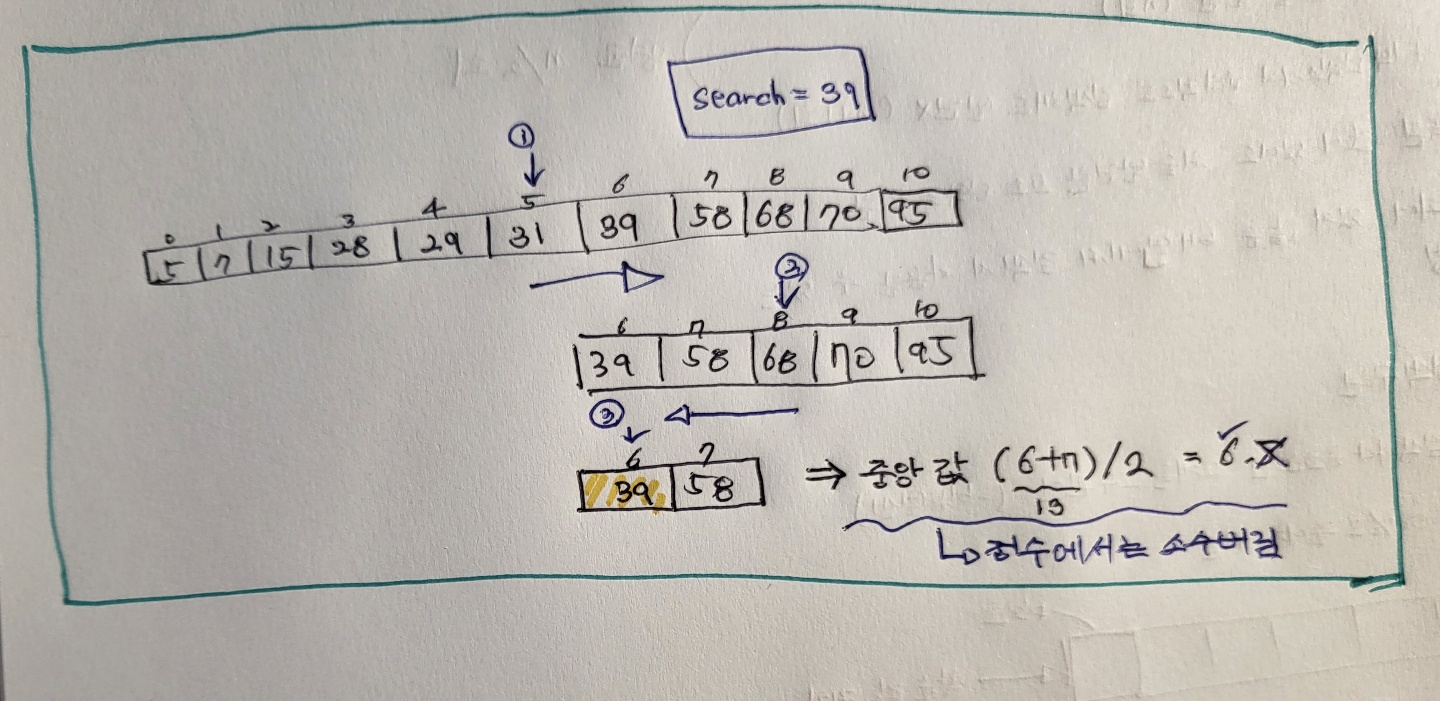 search = 39
①
0 1 2 3 4 5 6 7 8 9 10
5 7 15 28 29 31 39 58 68 70 95
②
6 7 8 9 10
39 58 68 70 95
③
6 7
39 58 ⇒ 중앙 값 (6+7)/2 = 6.x
13
정수에서는 소수버림